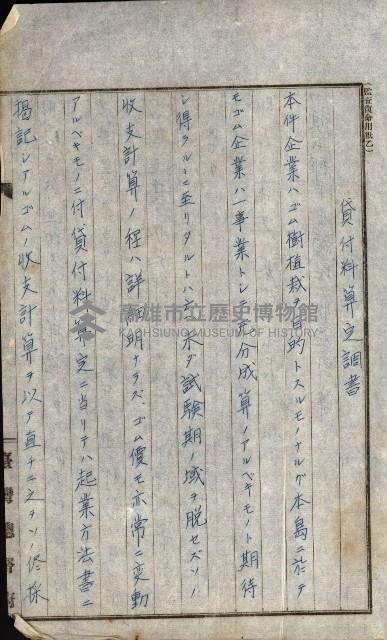 (監查復命用紙乙)
貸付料算定調書
本件企業ハゴム樹植栽ヲ目的トスルモノナルガ本島ニ於テ
モゴム企業ハ一事業トシテ充分成算ノアルベキモノト期待
シ得ラルヽニ至リタルトハ云ヘ未ダ試験期ノ域ヲ脱セズソノ
收支計算ノ程ハ詳細明ナラズ、ゴム價モ亦常ニ変動
アルベキモノニ付貸付料算定ニ当リテハ起業方法書ニ
掲記シアルゴムノ收支計算ヲ以テ直チニ之ヲソノ侭採
臺灣總督府
高雄市立歷史博物館
KAOHSIUNG MUSEUM OF HISTORY